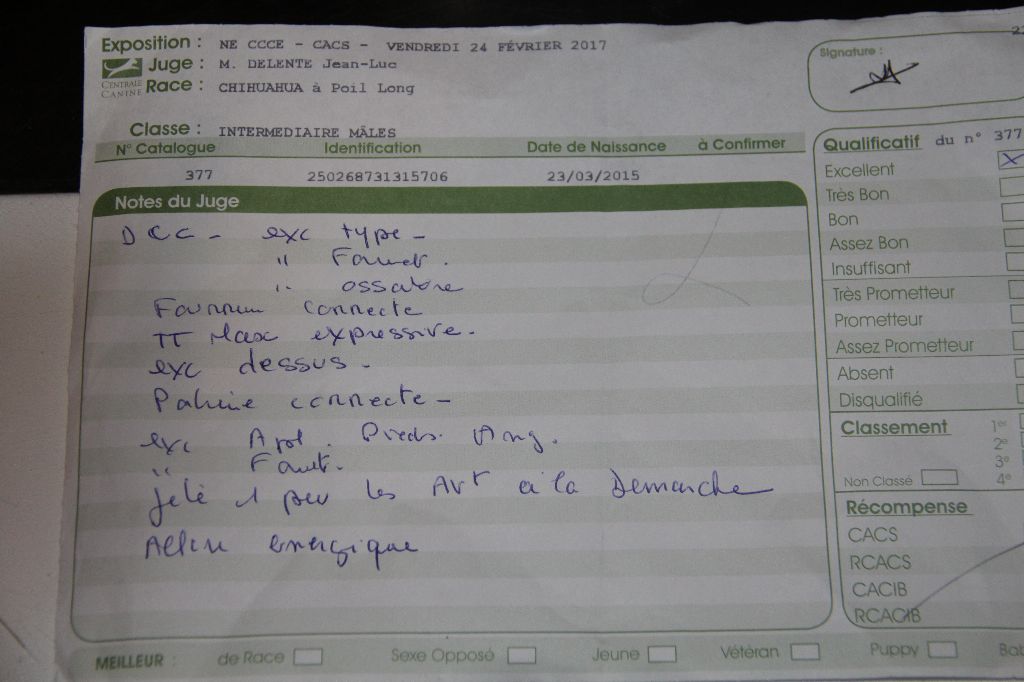 Exposition : NE CCCE - CACS - VENDREDI 24 FÉVRIER 2017
Juge : M. DELENTE Jean-Luc
CENTRALE CANINE
Race : CHIHUAHUA à Poil Long
Classe : INTERMEDIAIRE MÂLES
N° Catalogue Identification Date de Naissance à Confirmer
377 250268731315706 23/03/2015
Notes du Juge
DCC - exc type -
" Fouet.
" ossature
connecte
TT expressive.
exc dessus.
Poitrine connecte -
exc Apl. Pieds. Ang.
" Fouet.
jete 1 peu les Avt à la Demarche
Allure energique
Signature :
Qualificatif du n° 377
Excellent
Très Bon
Bon
Assez Bon
Insuffisant
Très Prometteur
Prometteur
Assez Prometteur
Absent
Disqualifié
Classement 1er
2e
3e
Non Classé 4e
Récompense
CACS
RCACS
CACIB
RCACIB
MEILLEUR : de Race Sexe Opposé Jeune Vétéran Puppy